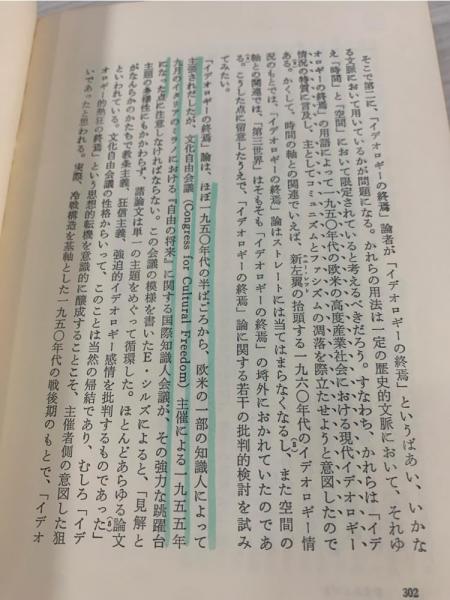 そこで第二に、「イデオロギーの終焉」論者が、「イデオロギーの終焉」というばあい、いかな
る文脈において用いているかが問題になる。かれらの用法は一定の歴史的文脈において、それゆ
え「時間」と「空間」において限定されていると考えるべきだろう。すなわち、かれらは「イデ
オロギーの終焉」の用語によって一九五〇年代の欧米の高度産業社会における現代イデオロギー
情況の特質に言及し、主としてコミュニズムとファシズムの凋落を際立たせようと意図したので
ある。かくして、時間の軸との関連でいえば、新左翼の抬頭する一九六〇年代のイデオロギー情
況のもとでは、「イデオロギーの終焉」論はストレートには当てはまらなくなるし、また空間の
軸との関連では、「第三世界」はそもそも「イデオロギーの終焉」の埒外におかれていたのであ
る。こうした点に留意したうえで、「イデオロギーの終焉」論に関する若干の批判的検討を試み
てみたい。
「イデオロギーの終焉」論は、ほぼ一九五〇年代の半ばころから、欧米の一部の知識人によって
主張されだしたが、文化自由会議（Congress for Cultural Freedom）主催による一九五五年
九月のイタリアのミラノにおける『自由の将来』に関する国際知識人会議が、その強力な跳躍台
になった点に注意しなければならない。この会議の模様を書いたE・シルズによると、「見解と
主題の多様性にもかかわらず、諸論文は単一の主題をめぐって循環した。ほとんどあらゆる論文
がなんらかのかたちで教条主義、狂信主義、強迫的イデオロギー感情を批判するものであった」
といわれている。文化自由会議の性格からいって、このことは当然の帰結であり、むしろ「イデ
オロギー的熱狂の終焉」という思想的転機を意識的に醸成することこそ、主催者側の意図した狙
いであったと思われる。実際、冷戦構造を基軸とした一九五〇年代の戦後期のもとで、「イデオ
302